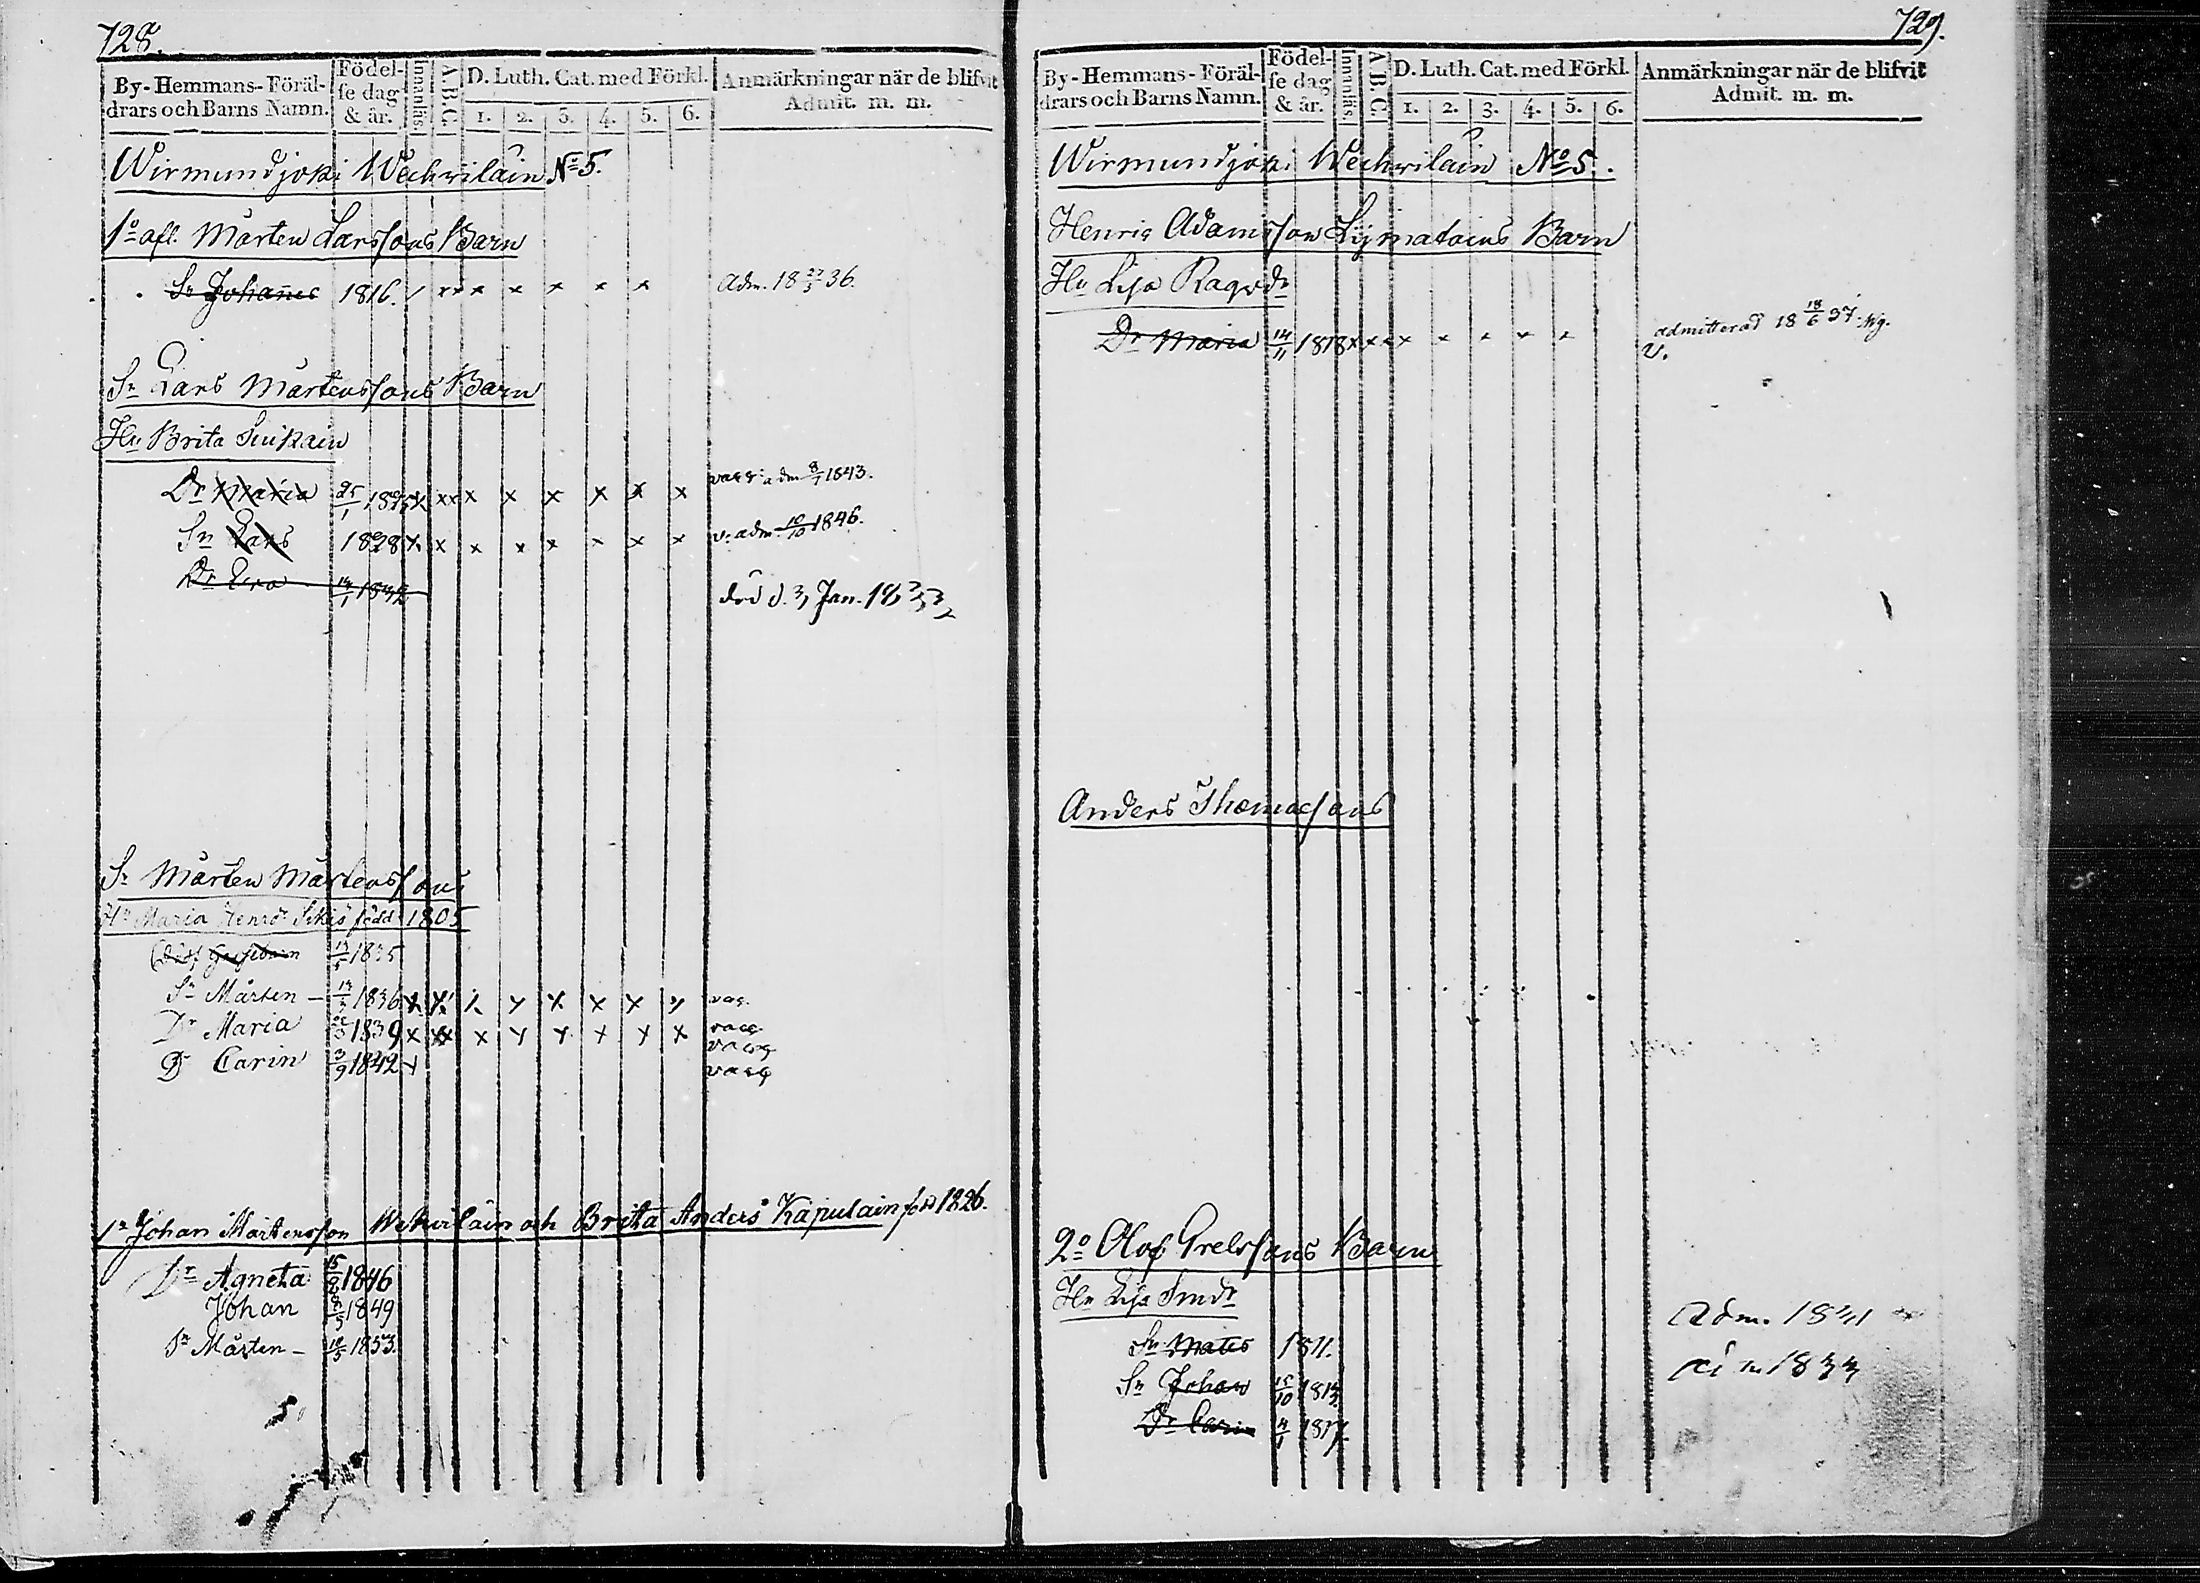 728.
By-Hemmans-Föräl-
drars och Barns Namn.
Födel-
se dag
& år.
Innanläs.
A.B.C.
D. Luth. Cat. med Förkl.
1. 2. 3. 4. 5. 6.
Anmärkningar när de blifvit
Admit. m. m.
Wirmundjoki Wechwiläin No 5.
1o afl. Mårten Larssons Barn
Sn Johannes 1816. Adm. 18 27/3 36.
Sn Lars Mårtenssons Barn
Hu Brita
Dr Maria 25/1 1825 x xx x x x x x x adm 8/7 1843.
Sn Lars 1828 x x x x x x x x v. adm 10/10 1846.
Dr Eva 1832 död d. 3 Jan. 1833
Sn Mårten Mårtenssons
Hu Maria Henrdr född 1805
1835
Sn Mårten 1836
Dr Maria 1839
Dr Carin 3/9 1842
Sn Johan Mårtensson Wekwiläin och Brita Anders Kapulain född 1826.
Dr Agneta 1846
Johan 1849
Sn Mårten 1853.
729.
By-Hemmans-Föräl-
drars och Barns Namn.
Födel-
se dag
& år.
Innanläs.
A.B.C.
D. Luth. Cat. med Förkl.
1. 2. 3. 4. 5. 6.
Anmärkningar när de blifvit
Admit. m. m.
Wirmundjoki Wechwilain No 5.
Henric Adamsson Lijmatains Barn
Hu Lisa Ragvdr
Dr Maria 14/11 1818 x x x x x x x x admitterad 18 18/6 37.
v.
Anders Thomassons
2o Olof Grelssons Barn
Hu Lisa Smdr
Sn Mats 1811. Adm. 1831
Sn Johan 15/10 1813
Dr Carin 4/1 1817.